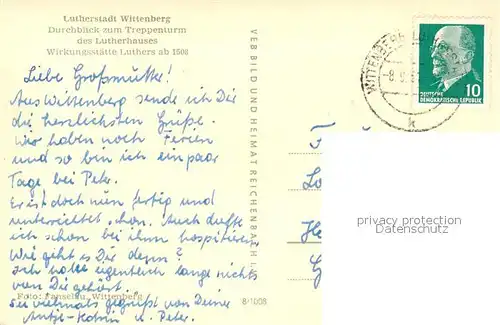 Lutherstadt Wittenberg
Durchblick zum Treppenturm
des Lutherhauses
Wirkungsstätte Luthers ab 1508
Liebe Großmutter!
Aus Wittenberg sende ich Dir
die herzlichsten Grüße.
Wir haben noch Ferien
und so bin ich ein paar
Tage bei Peter.
Er ist doch nun fertig und
unterrichtet schon. Auch durfte
ich schon bei ihm hospitieren.
Wie geht es Dir denn?
Ich habe eigentlich lange nichts
von Dir gehört.
Foto: Fanselau, Wittenberg
8-1008
Sei vielmals gegrüßt von Deiner
Antje-Katrin u. Peter.
VEB BILD UND HEIMAT REICHENBACH I.
WITTENBERG LU
k
10
DEUTSCHE
DEMOKRATISCHE REPUBLIK
privacy protection
Datenschutz